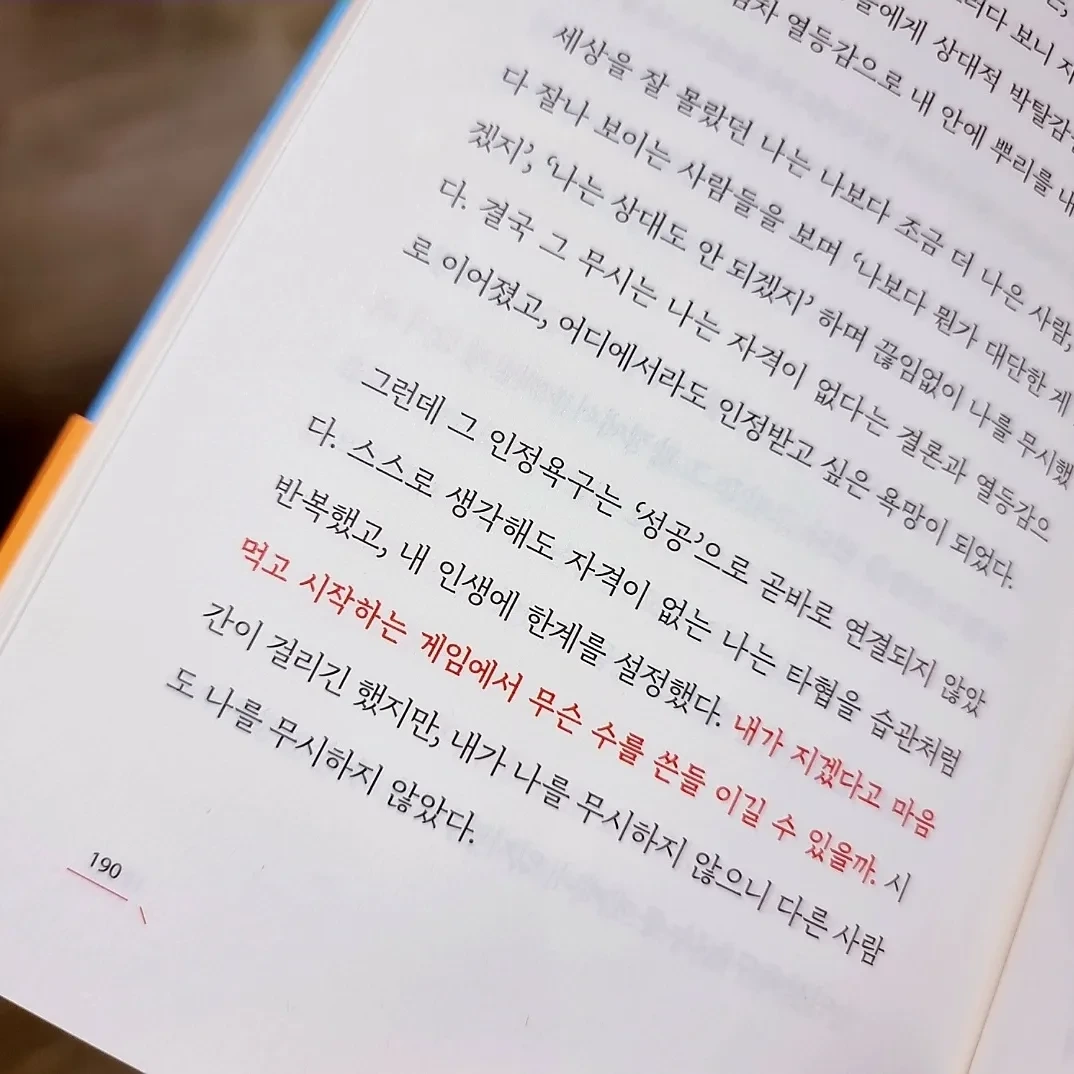 보니
들에게 상대적 박탈감
열등감으로 내 안에 뿌리를 내
세상을 잘 몰랐던 나는 나보다 조금 더 나은 사람,
다 잘나 보이는 사람들을 보며 ‘나보다 뭔가 대단한 게
겠지’, ‘나는 상대도 안 되겠지’ 하며 끊임없이 나를 무시했
다. 결국 그 무시는 나는 자격이 없다는 결론과 열등감으
로 이어졌고, 어디에서라도 인정받고 싶은 욕망이 되었다.
그런데 그 인정욕구는 ‘성공’으로 곧바로 연결되지 않았
다. 스스로 생각해도 자격이 없는 나는 타협을 습관처럼
반복했고, 내 인생에 한계를 설정했다. 내가 지겠다고 마음
먹고 시작하는 게임에서 무슨 수를 쓴들 이길 수 있을까. 시
간이 걸리긴 했지만, 내가 나를 무시하지 않으니 다른 사람
도 나를 무시하지 않았다.
190